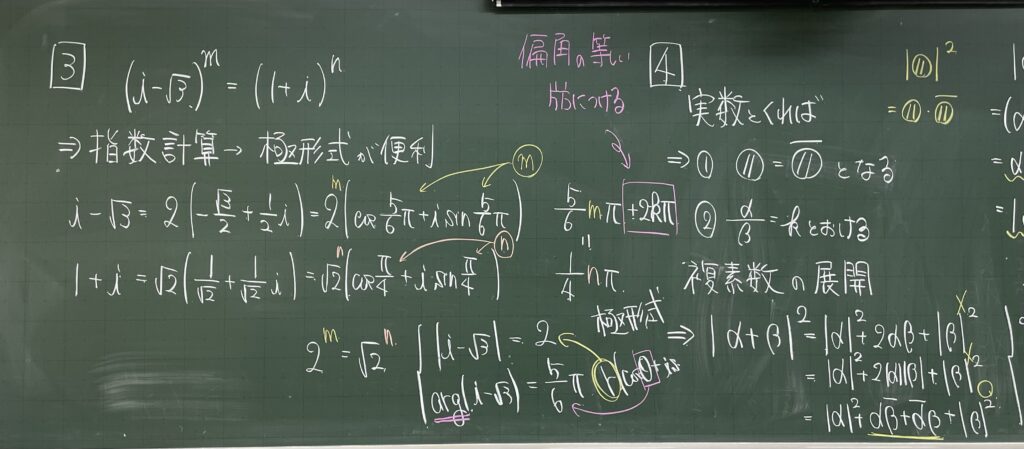 3
(i-√3)^m = (1+i)^n
⇒ 指数計算→ 極形式が便利
i-√3 = 2(-√3/2 + 1/2 i) = 2^m(cos 5/6 π + i sin 5/6 π)
m
1+i = √2(1/√2 + 1/√2 i) = √2^n(cos π/4 + i sin π/4)
n
2^m = √2^n
|i-√3| = 2
arg(i-√3) = 5/6 π
極形式
r(cosθ+i
偏角の等しい
につける
5/6 mπ +2kπ
"
1/4 nπ.
4
実数とくれば
⇒ ① 〃 = 〃‾ となる
② α/β = k とおける
複素数の展開
⇒ |α+β|² = |α|²+2αβ+|β|² ×
= |α|²+2|α||β|+|β|² ×
= |α|²+αβ̅+α̅β+|β|² ○
|〃|²
= 〃・〃‾